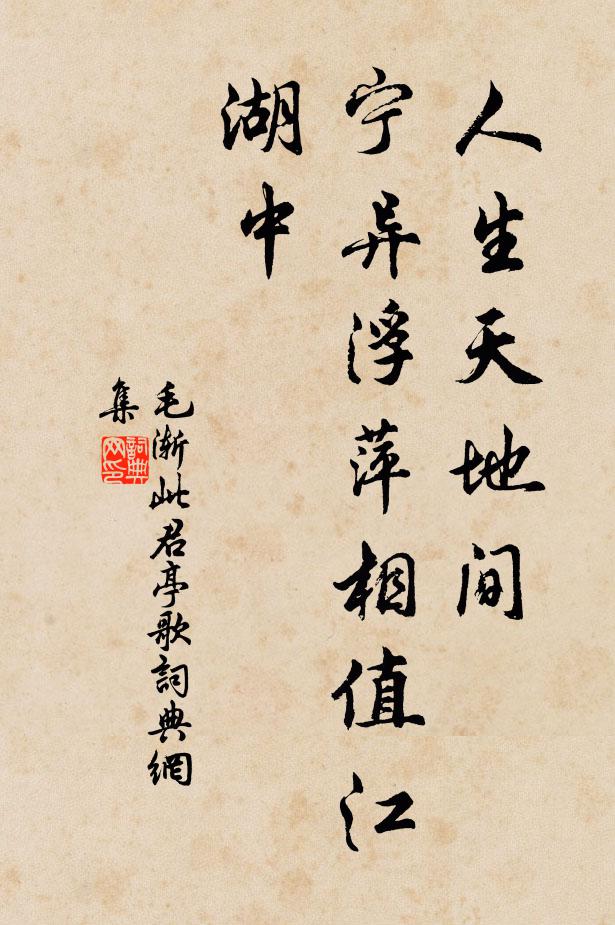 人生天地间
宁异浮萍相值江
湖中
毛渐此君亭歌詞典網
集
詞典
网印